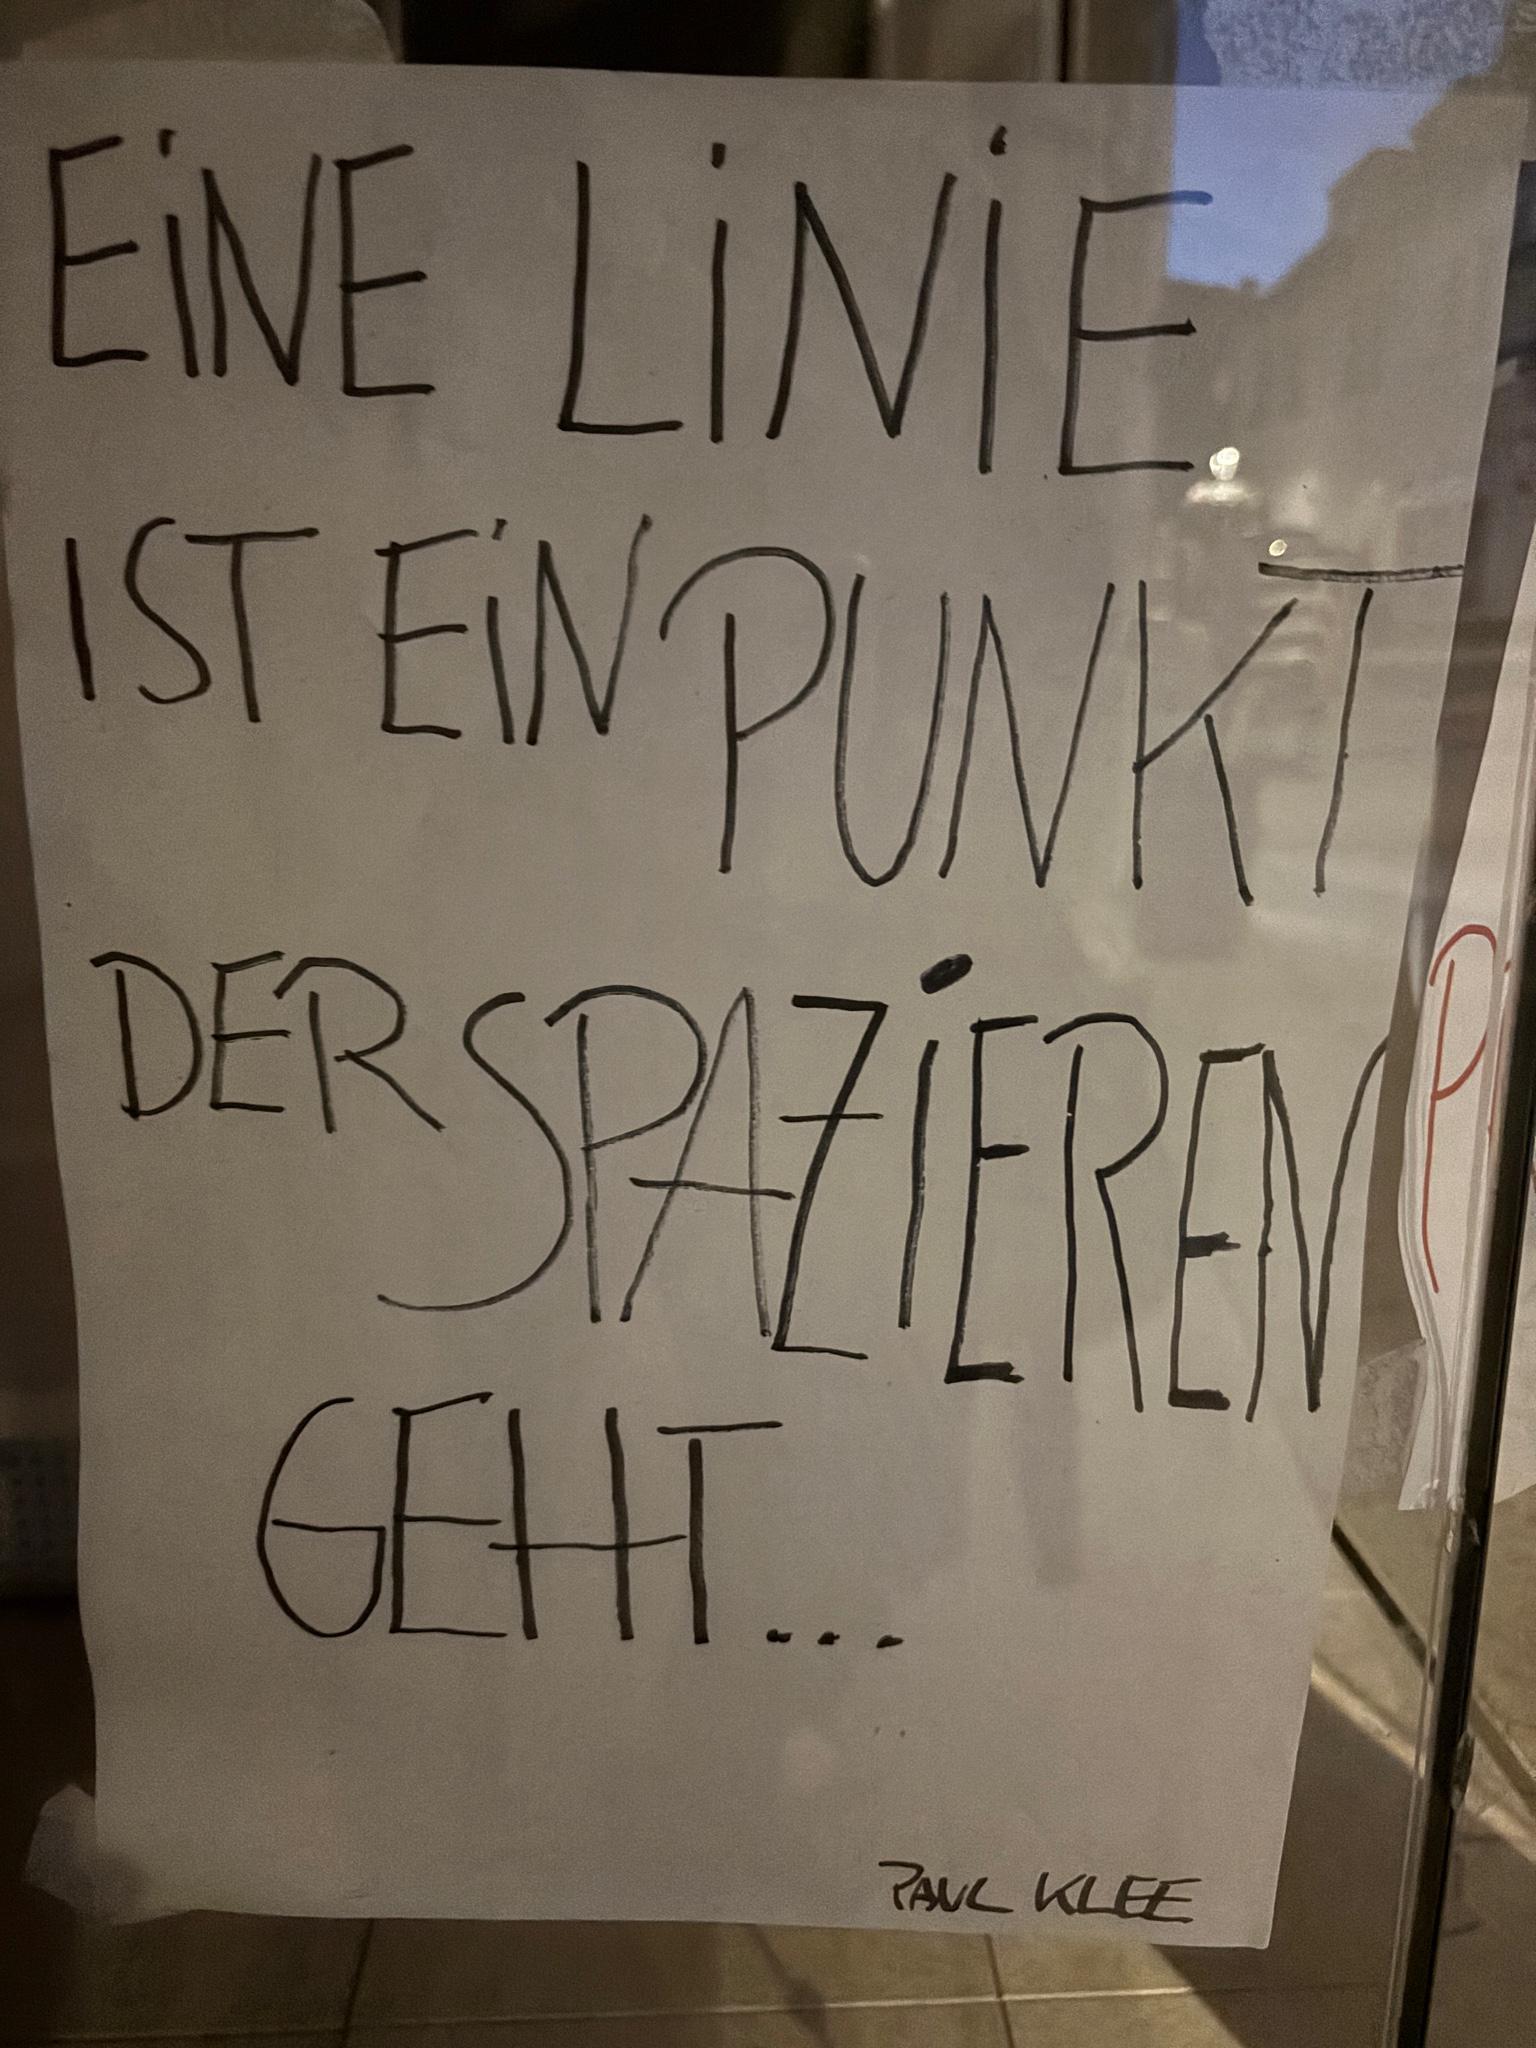 EiNE LiNiE
IST EiN PUNKT
DER SPAZiEREN
GEHT...
PAUL KLEE
P